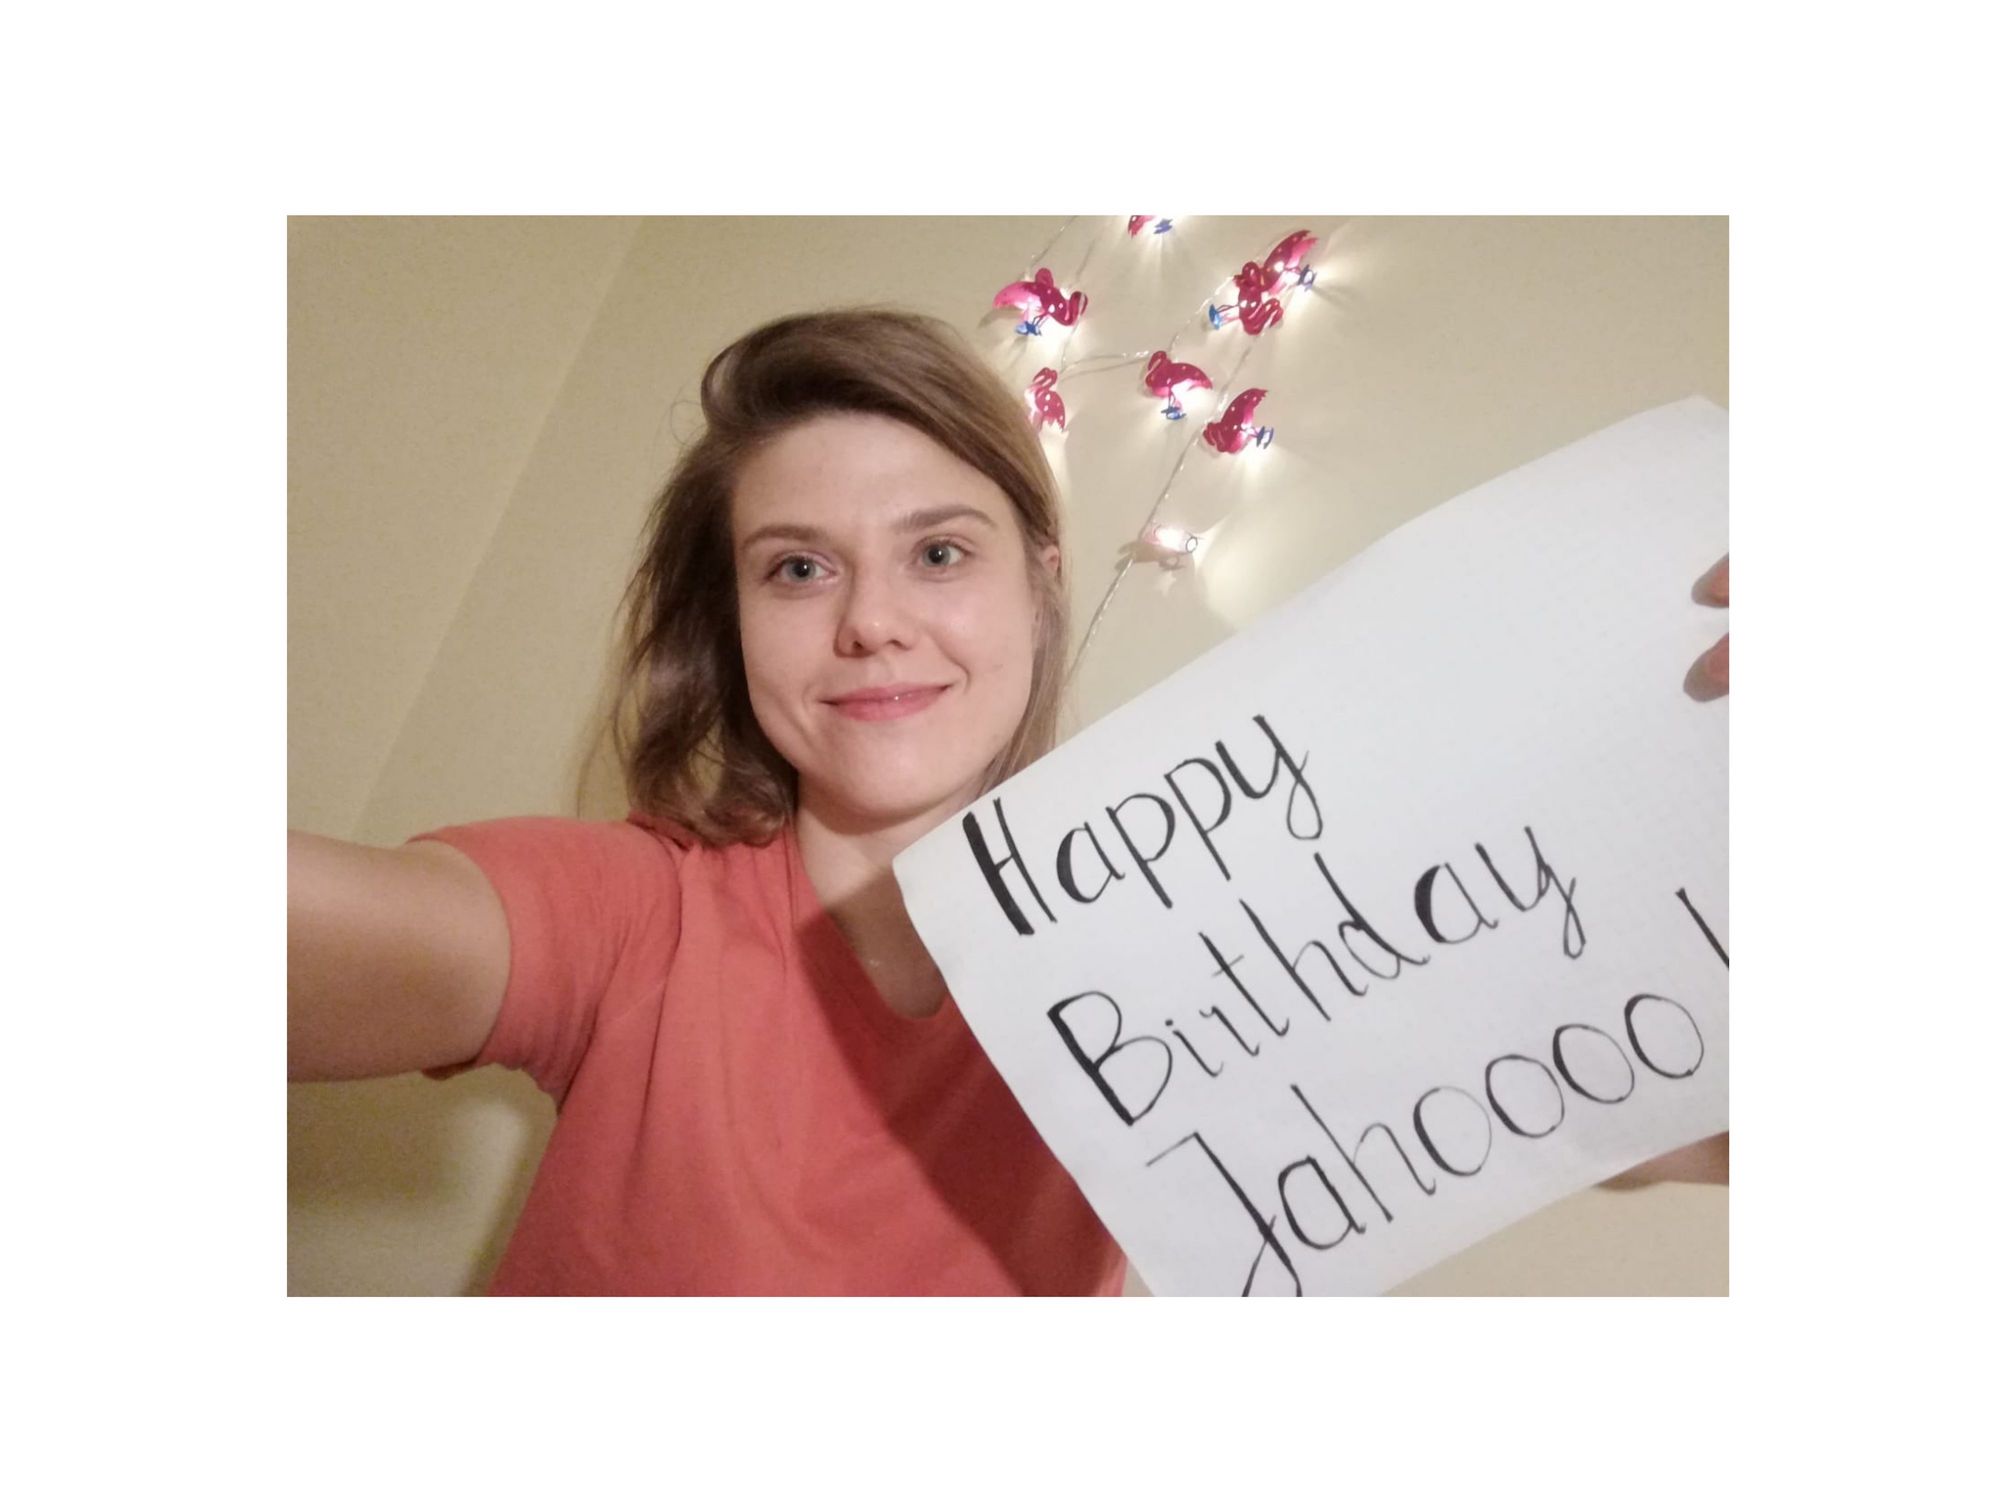 Happy
Birthday
Jahoooo!